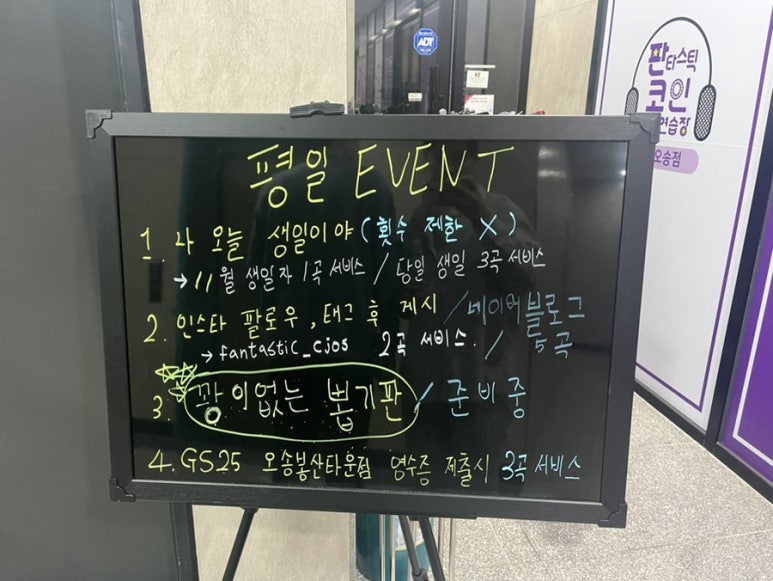 ADT
판타스틱
코인
연습장
오송점
평일 EVENT
1. 나 오늘 생일이야 (횟수 제한 X)
→ 11월 생일자 1곡 서비스 / 당일 생일 3곡 서비스
2. 인스타 팔로우, 태그 후 게시 / 네이버블로그
→ fantastic_cjos 2곡 서비스. / 5곡
3. 꽝이없는 뽑기판 / 준비중
4. GS25 오송봉산타운점 영수증 제출시 3곡 서비스